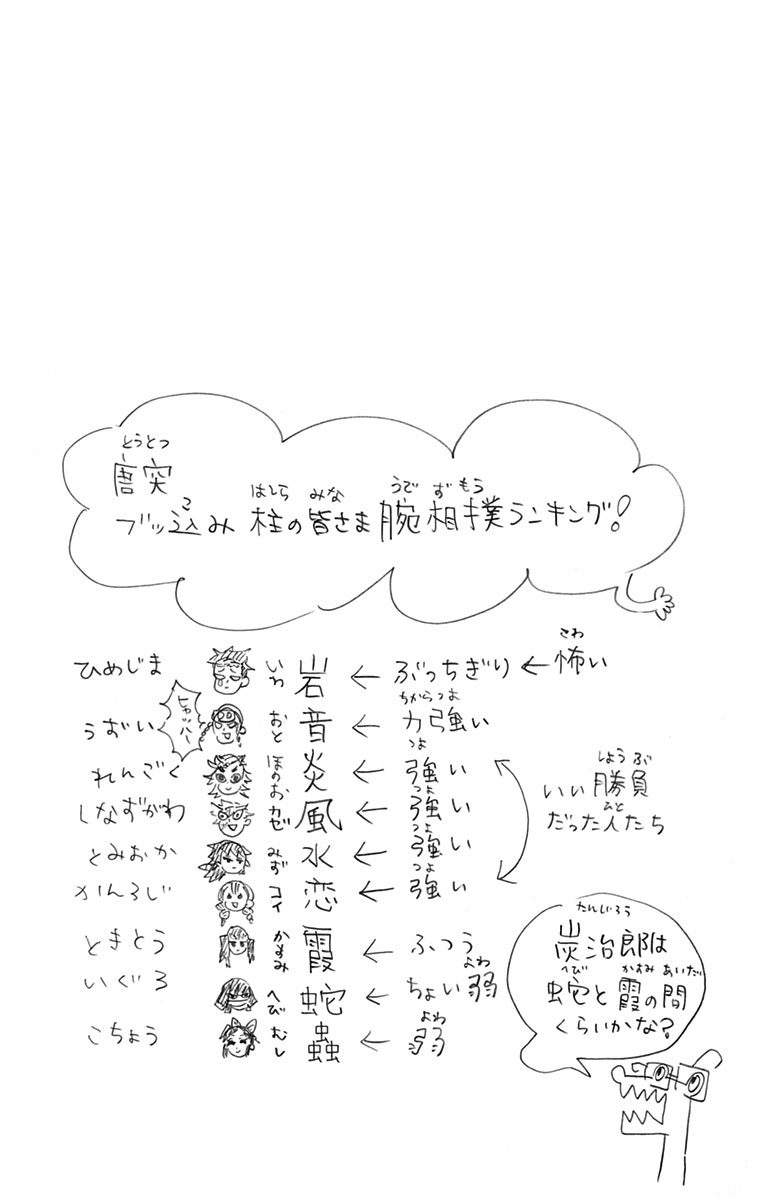 とうとつ
唐突
こ はしら みな うで ずもう
ブッ込み 柱の皆さま腕相撲ランキング!
ひめじま いわ 岩 ← ぶっちぎり ← 怖い
こわ
ヒャッハー
ちからつよ
うずい おと 音 ← 力強い
つよ
れんごく ほのお 炎 ← 強い
つよ
しなずがわ カゼ 風 ← 強い
つよ
とみおか みず 水 ← 強い
つよ
かんろじ コイ 恋 ← 強い
しょうぶ
いい勝負
ひと
だった人たち
ときとう かすみ 霞 ← ふつう
よわ
いぐろ へび 蛇 ← ちょい弱
よわ
こちょう むし 蟲 ← 弱
たんじろう
炭治郎は
へび かすみ あいだ
蛇と霞の間
くらいかな?